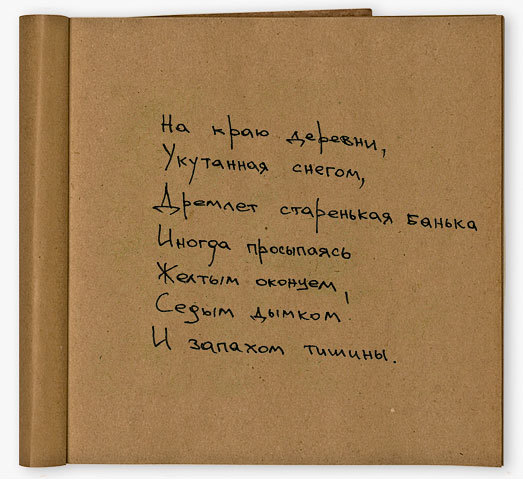 На краю деревни,
Укутанная снегом,
Дремлет старенькая Банька
Иногда просыпаясь
Желтым оконцем,
Седым дымком.
И запахом тишины.